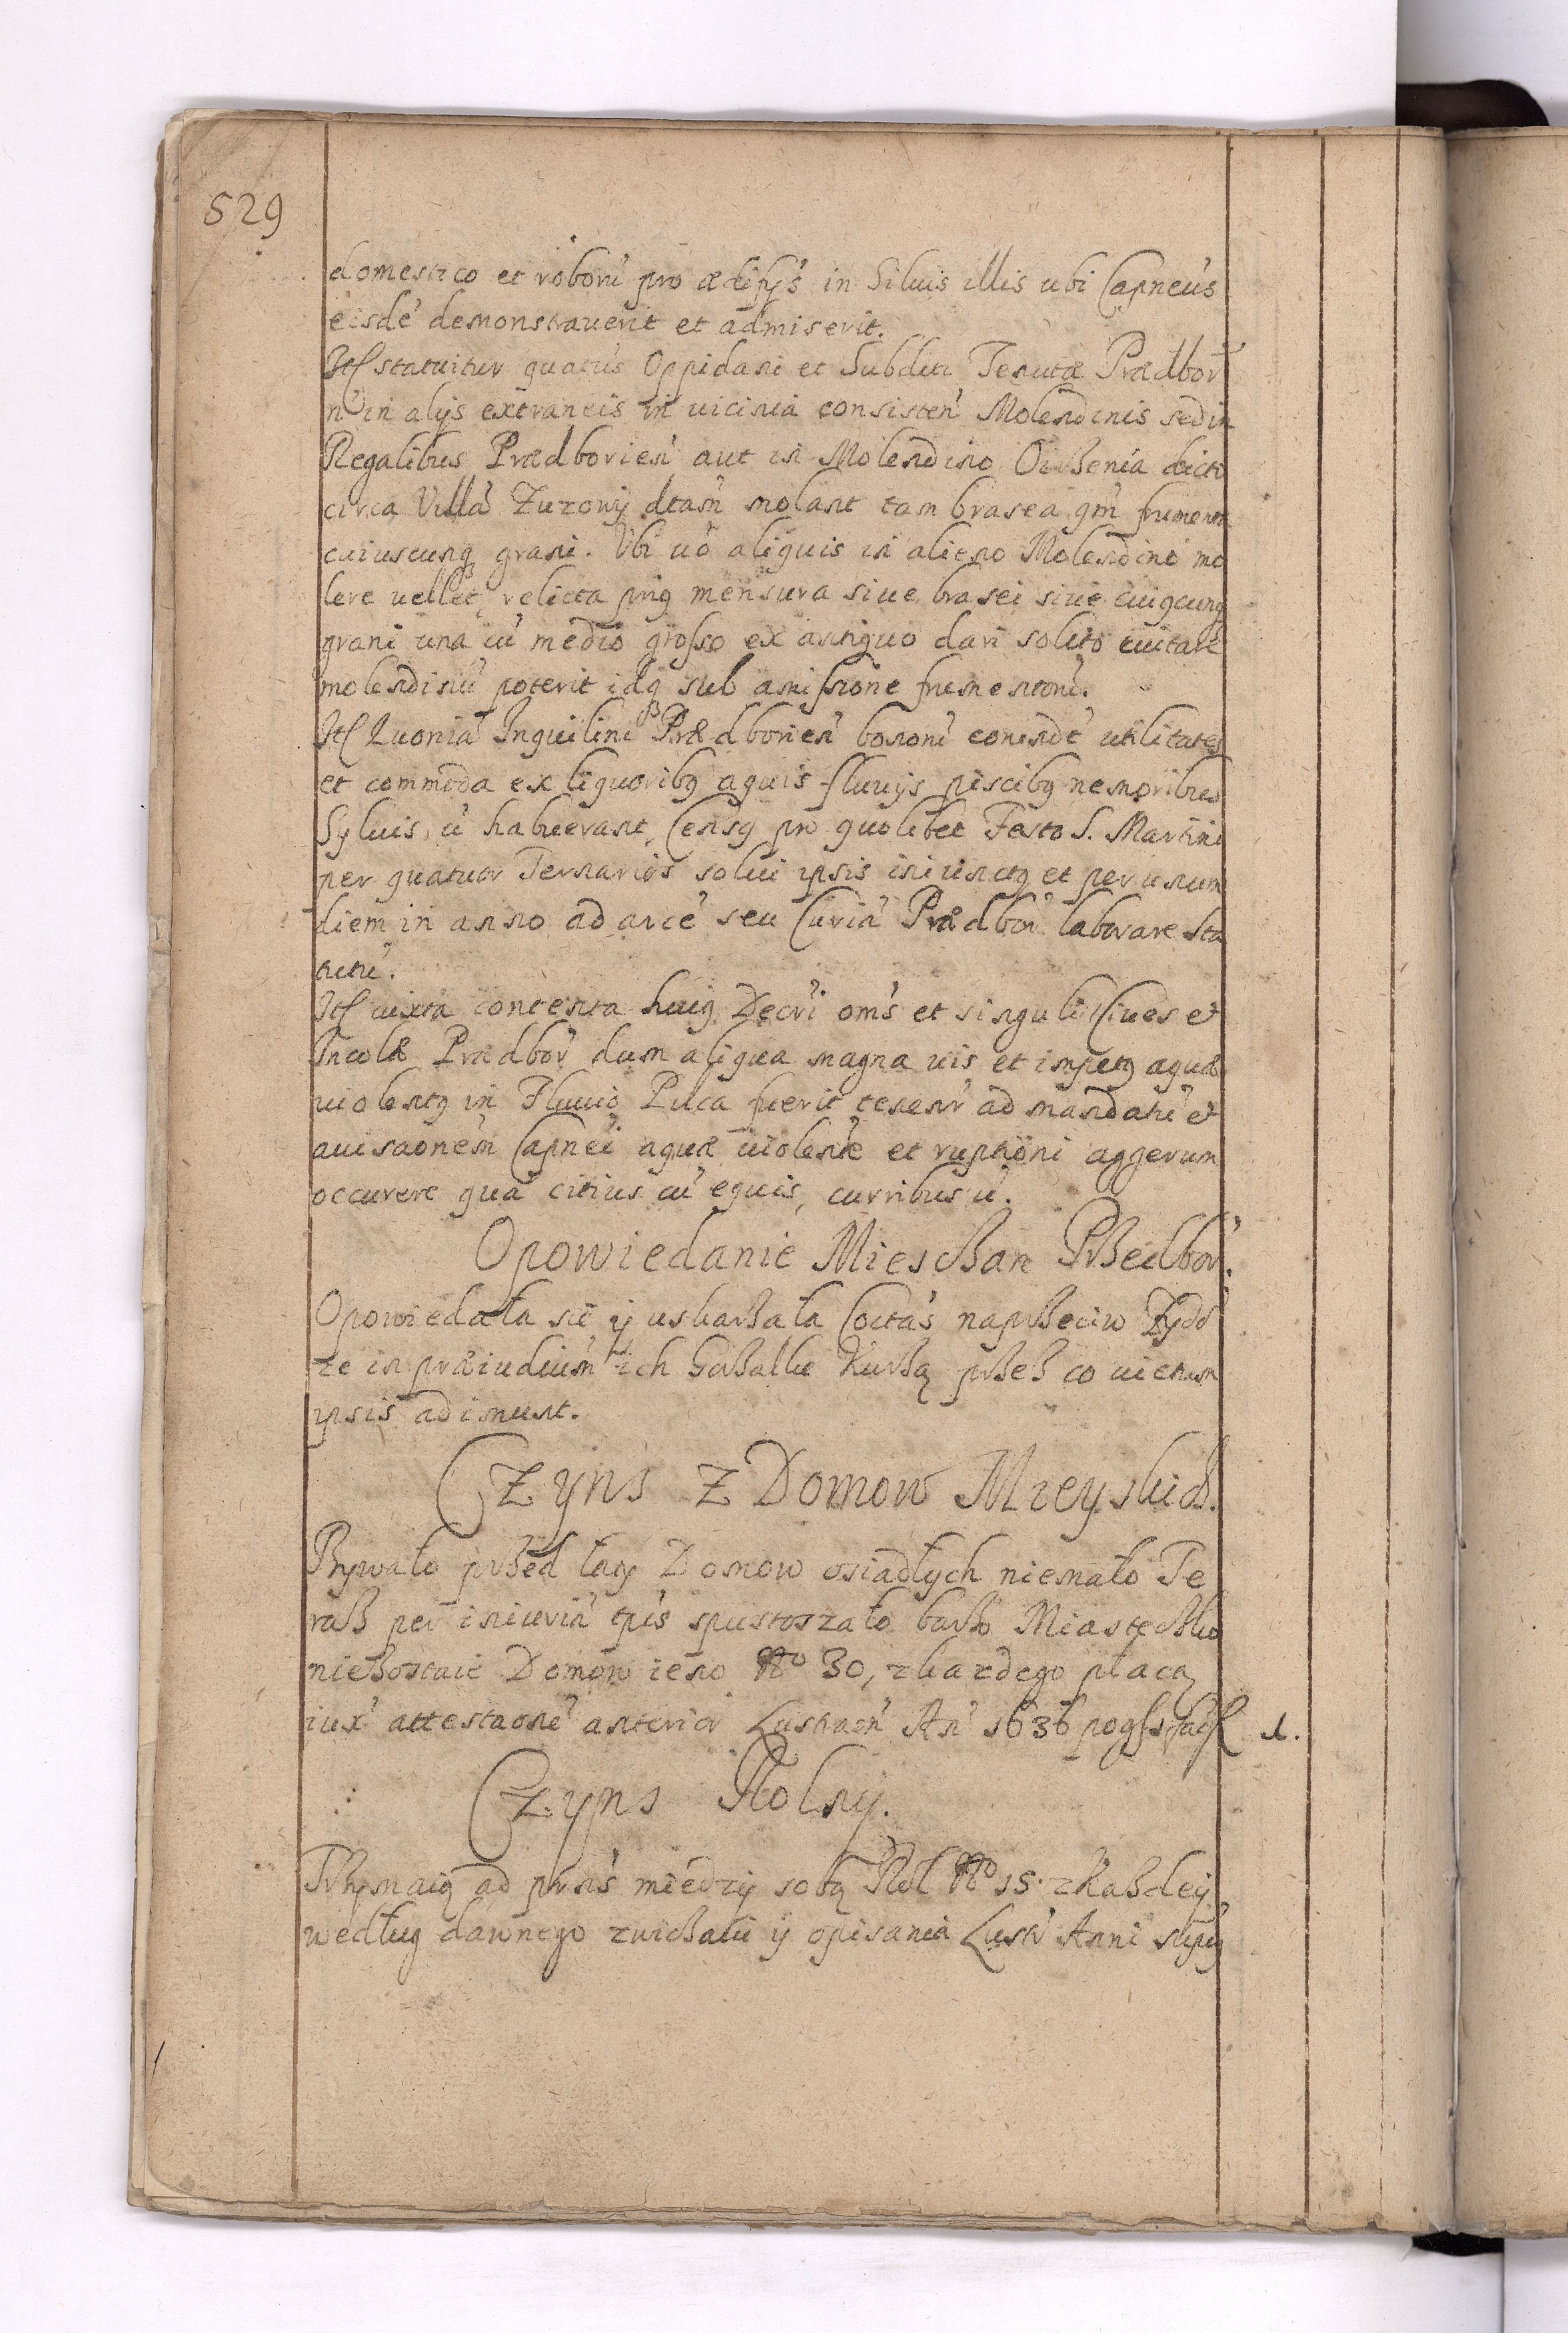 529
domestico et roborũ pro ædifijs in Siluis illis ubi Capneus
eisdẽ demonstrauerit et admiserit.
Itẽ statuitur quatus Oppidani et Subditi Tenutæ Prædbor
nõ in alijs extraneis in uicinia consisteñ Molendinis sed in
Regalibus Prædborieñ aut in Molendino dicto
circa Villã Zuzowy dtam molant tam brasea qm frumenta
cuiuscunq grani. Vbi uo aliquis in alieno Molendino mo
lere uellet, relicta mensura siue brasei siue cuiqcunq
grani una cũ medio grosso ex antiquo dari solito euitare
molendinũ poterit idq sub amissione frumentorũ.
Itẽ Quonia Inquilini Prædborieñ bonorũ eorundẽ utilitates
et commoda ex liquoribq aquis fluuijs piscibq nemoribus
Syluis, ũ habuerant, Censq pro quolibet Festo S. Martini
per quatuor Ternarios solui ipsis iniunctq et per unum
diem in anno ad arcẽ seu Curiã Prædbor laborare sta
tutũ.
Itẽ iuxta contenta huiq Decri oms et singuli Ciues et
Incolæ Prædbor dum aliqua magna uis et impetq aquæ
uiolentq in Fluuio Pilca fuerit tenenr ad mandatũ et
auisaonem Capnei aquæ uiolentæ et ruptioni aggerum
occurere quã citius cũ equis, curribus ũ.
Opowiedanie Miesczan Przedbor.
Opowiedała się y uskarzała Coctas naprzeciw Zydo
ze in præiudiu̅m ich Gorzałke Kurzą przez co uictum
ipsis adimunt.
Czyns z Domow Mieyskich.
Bywało przed laty Domow osiadłych niemało Te
raz per iniuriã tpis spustoszało barzo Miasteczko
niezostaie Domow ieno No 30, z kazdego płacą
iux attestaone anterior Lustraeñ Añ 1636 po 1.
Czyns Rolny.
Trzymaią ad prns miedzy sobą Rol No 15. z Kazdey
według dawnego zwiczaiu y opisania Lustr Anni